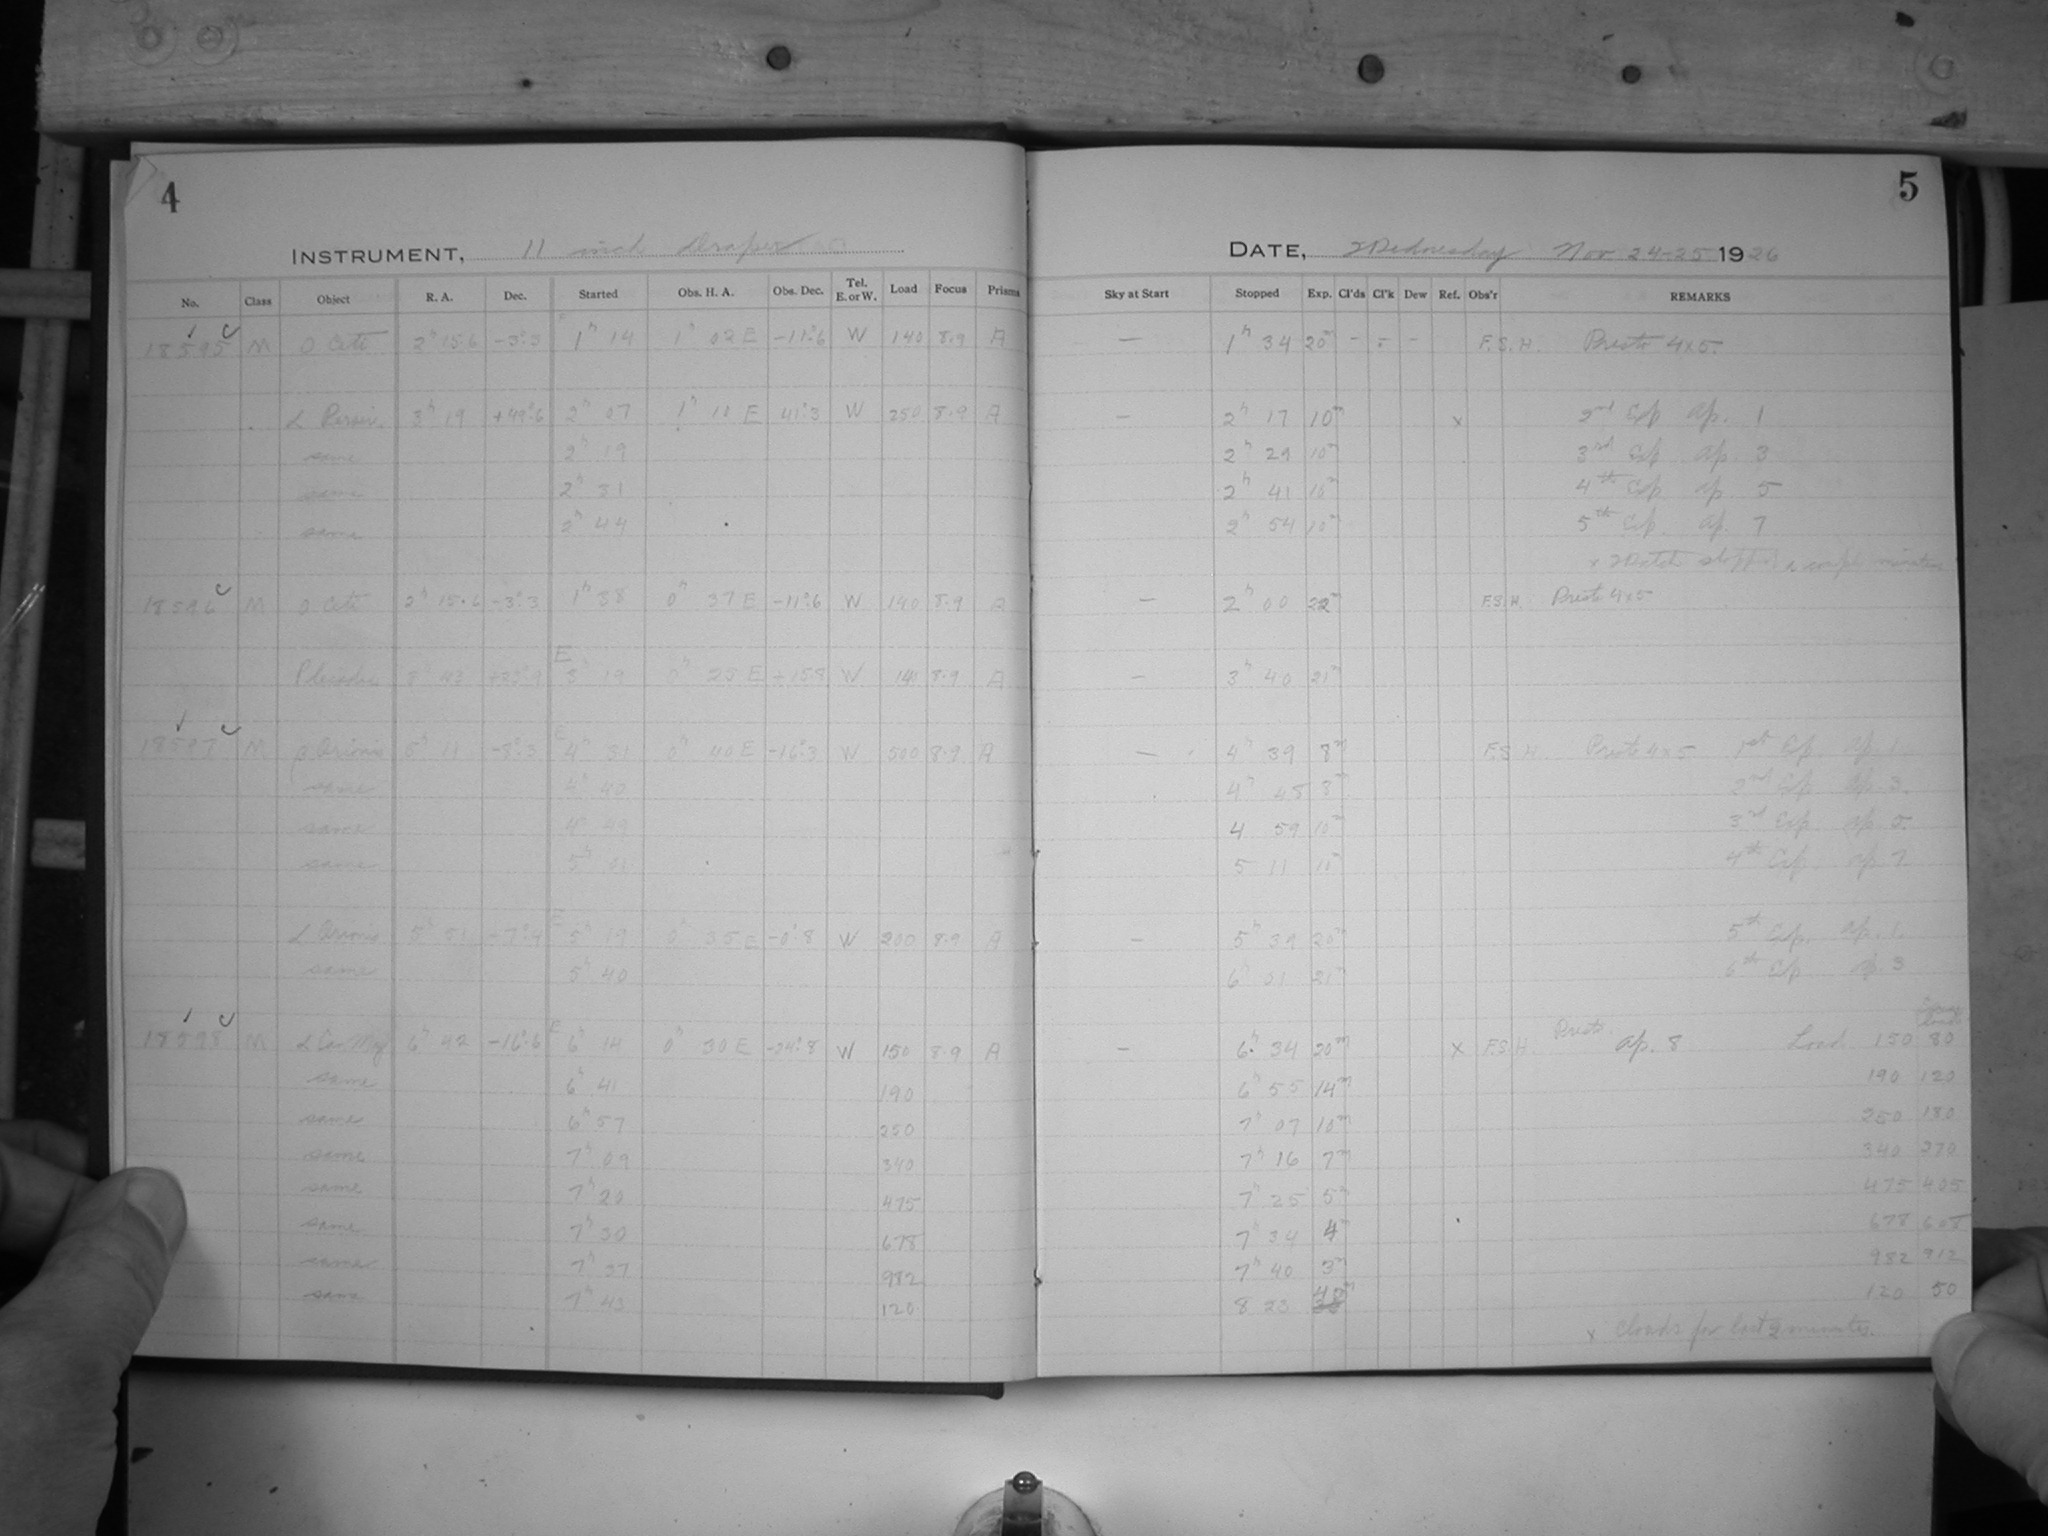 4
5
INSTRUMENT, 11 inch Draper
DATE, Wednesday Nov 24-25 1926
No. Class Object R. A. Dec. Started Obs. H. A. Obs. Dec. Tel. E. or W. Load Focus Prisms Sky at Start Stopped Exp. Cl'ds Cl'k Dew Ref. Obs'r REMARKS
18595 M o Ceti 2h 15.6 -3°.3 1h 14 1h 02 E -11°.6 W 140 8.9 A — 1h 34 20m - - - F.S.H. Presto 4x5.
α Persei 3h 19 +49°.6 2h 07 1h 10 E 41°.3 W 250 8.9 A — 2h 17 10m x 2nd Exp ap. 1
same 2h 19 2h 29 10m 3rd Exp ap. 3
same 2h 31 2h 41 10m 4th Exp ap. 5
same 2h 44 2h 54 10m 5th Exp. ap. 7
x Watch stopped a couple minutes
18596 M o Ceti 2h 15.6 -3°.3 1h 38 0h 37 E -11°.6 W 140 8.9 A — 2h 00 22m F.S.H. Presto 4x5
Pleiades 3h 43 +23°.9 E 3h 19 0h 25 E +15.8 W 140 8.9 A — 3h 40 21m
18597 M β Orionis 5h 11 -8°.3 E 4h 31 0h 40 E -16°.3 W 500 8.9 A — 4h 39 8m F.S.H. Presto 4x5 1st Exp. ap. 1
same 4h 40 4h 48 8m 2nd Exp ap. 3.
same 4h 49 4 59 10m 3rd Exp ap. 5.
same 5h 01 5 11 4th Exp. ap. 7
α Orionis 5h 51 E 5h 19 0h 35 E -0°.8 W 200 8.9 A — 5h 39 20m 5th Exp. ap. 1.
same 5h 40 6h 01 21m 6th Exp ap. 3
18598 M α Can. Maj 6h 42 -16°.6 E 6h 14 0h 30 E -24°.8 W 150 8.9 A — 6h 34 20m x F.S.H. Presto. ap. 8 Load 150 80
same 6h 41 190 6h 55 14m 190 120
same 6h 57 250 7h 07 10m 250 180
same 7h 09 340 7h 16 7m 340 270
same 7h 20 475 7h 25 5m 475 405
same 7h 30 678 7h 34 4m 678 608
same 7h 37 982 7h 40 3m 982 912
same 7h 43 120 8 23 40m 120 50
x Clouds for last 2 minutes.